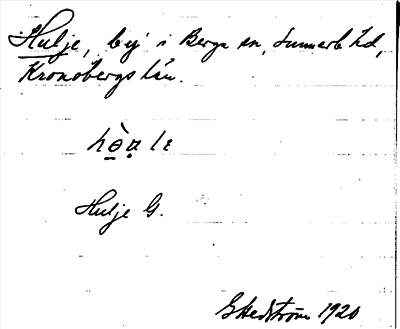 Hulje, by i Berga sn, Sunnerb hd,
Kronobergs län.
Hulje G.
GHedström 1920